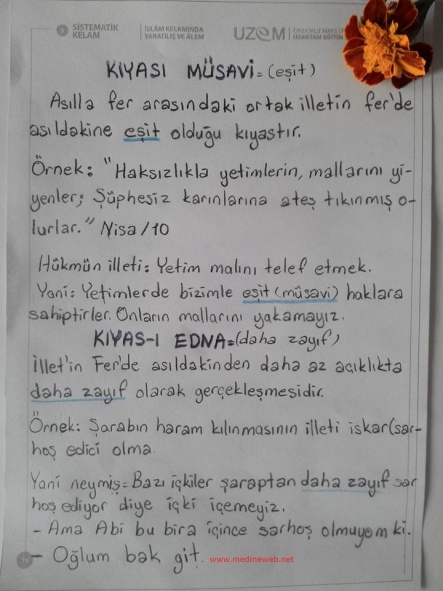 SİSTEMATİK
KELAM
İSLAM KELAMINDA
YARATILIŞ VE ÂLEM
UZEM
ONDOKUZ MAYIS
UZAKTAN EĞİTİM
KIYASI MÜSAVİ= (eşit)
Asılla fer arasındaki ortak illetin fer'de
asıldakine eşit olduğu kıyastır.
Örnek: "Haksızlıkla yetimlerin, mallarını yi-
yenler; Şüphesiz karınlarına ateş tıkınmış o-
lurlar." Nisa/10
Hükmün illeti: Yetim malını telef etmek.
Yani: Yetimlerde bizimle eşit (müsavi) haklara
sahiptirler. Onların mallarını yakamayız.
KIYAS-I EDNA=(daha zayıf)
İllet'in Fer'de asıldakinden daha az açıklıkta
daha zayıf olarak gerçekleşmesidir.
Örnek: Şarabın haram kılınmasının illeti iskar(sar-
hoş edici olma
Yani neymiş= Bazı içkiler şaraptan daha zayıf sar
hoş ediyor diye içki içemeyiz.
- Ama Abi bu bira içince sarhoş olmuyom ki.
- Oğlum bak git. www.medineweb.net